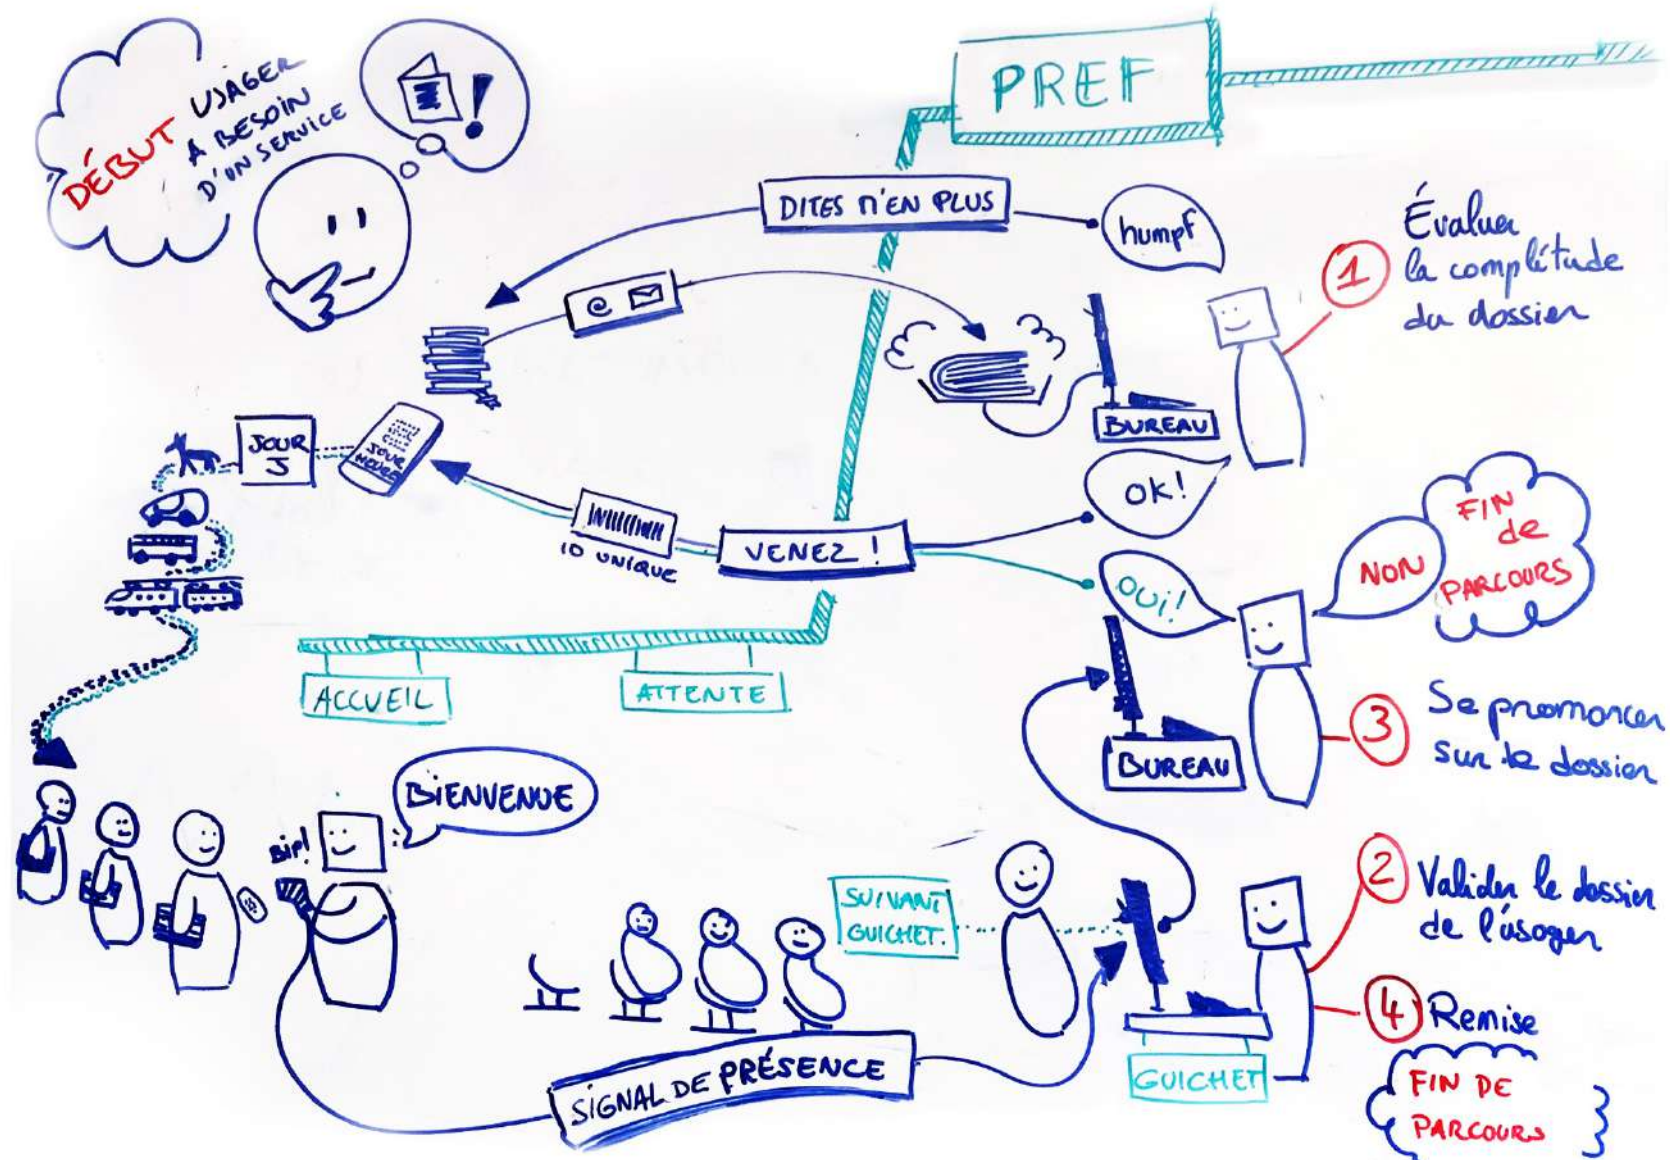 DÉBUT
USAGER
A BESOIN
D'UN SERVICE
!
PREF
DITES M'EN PLUS
humpf
1
Évaluer
la complétude
du dossier
@
BUREAU
JOUR
J
JOUR
HEURE
OK!
ID UNIQUE
VENEZ !
OUI!
NON
FIN
de
PARCOURS
ACCUEIL
ATTENTE
BUREAU
3
Se prononcer
sur le dossier
BIENVENUE
BIP!
SUIVANT
GUICHET.
2
Valider le dossier
de l'usager
4
Remise
SIGNAL DE PRÉSENCE
GUICHET
FIN DE
PARCOURS